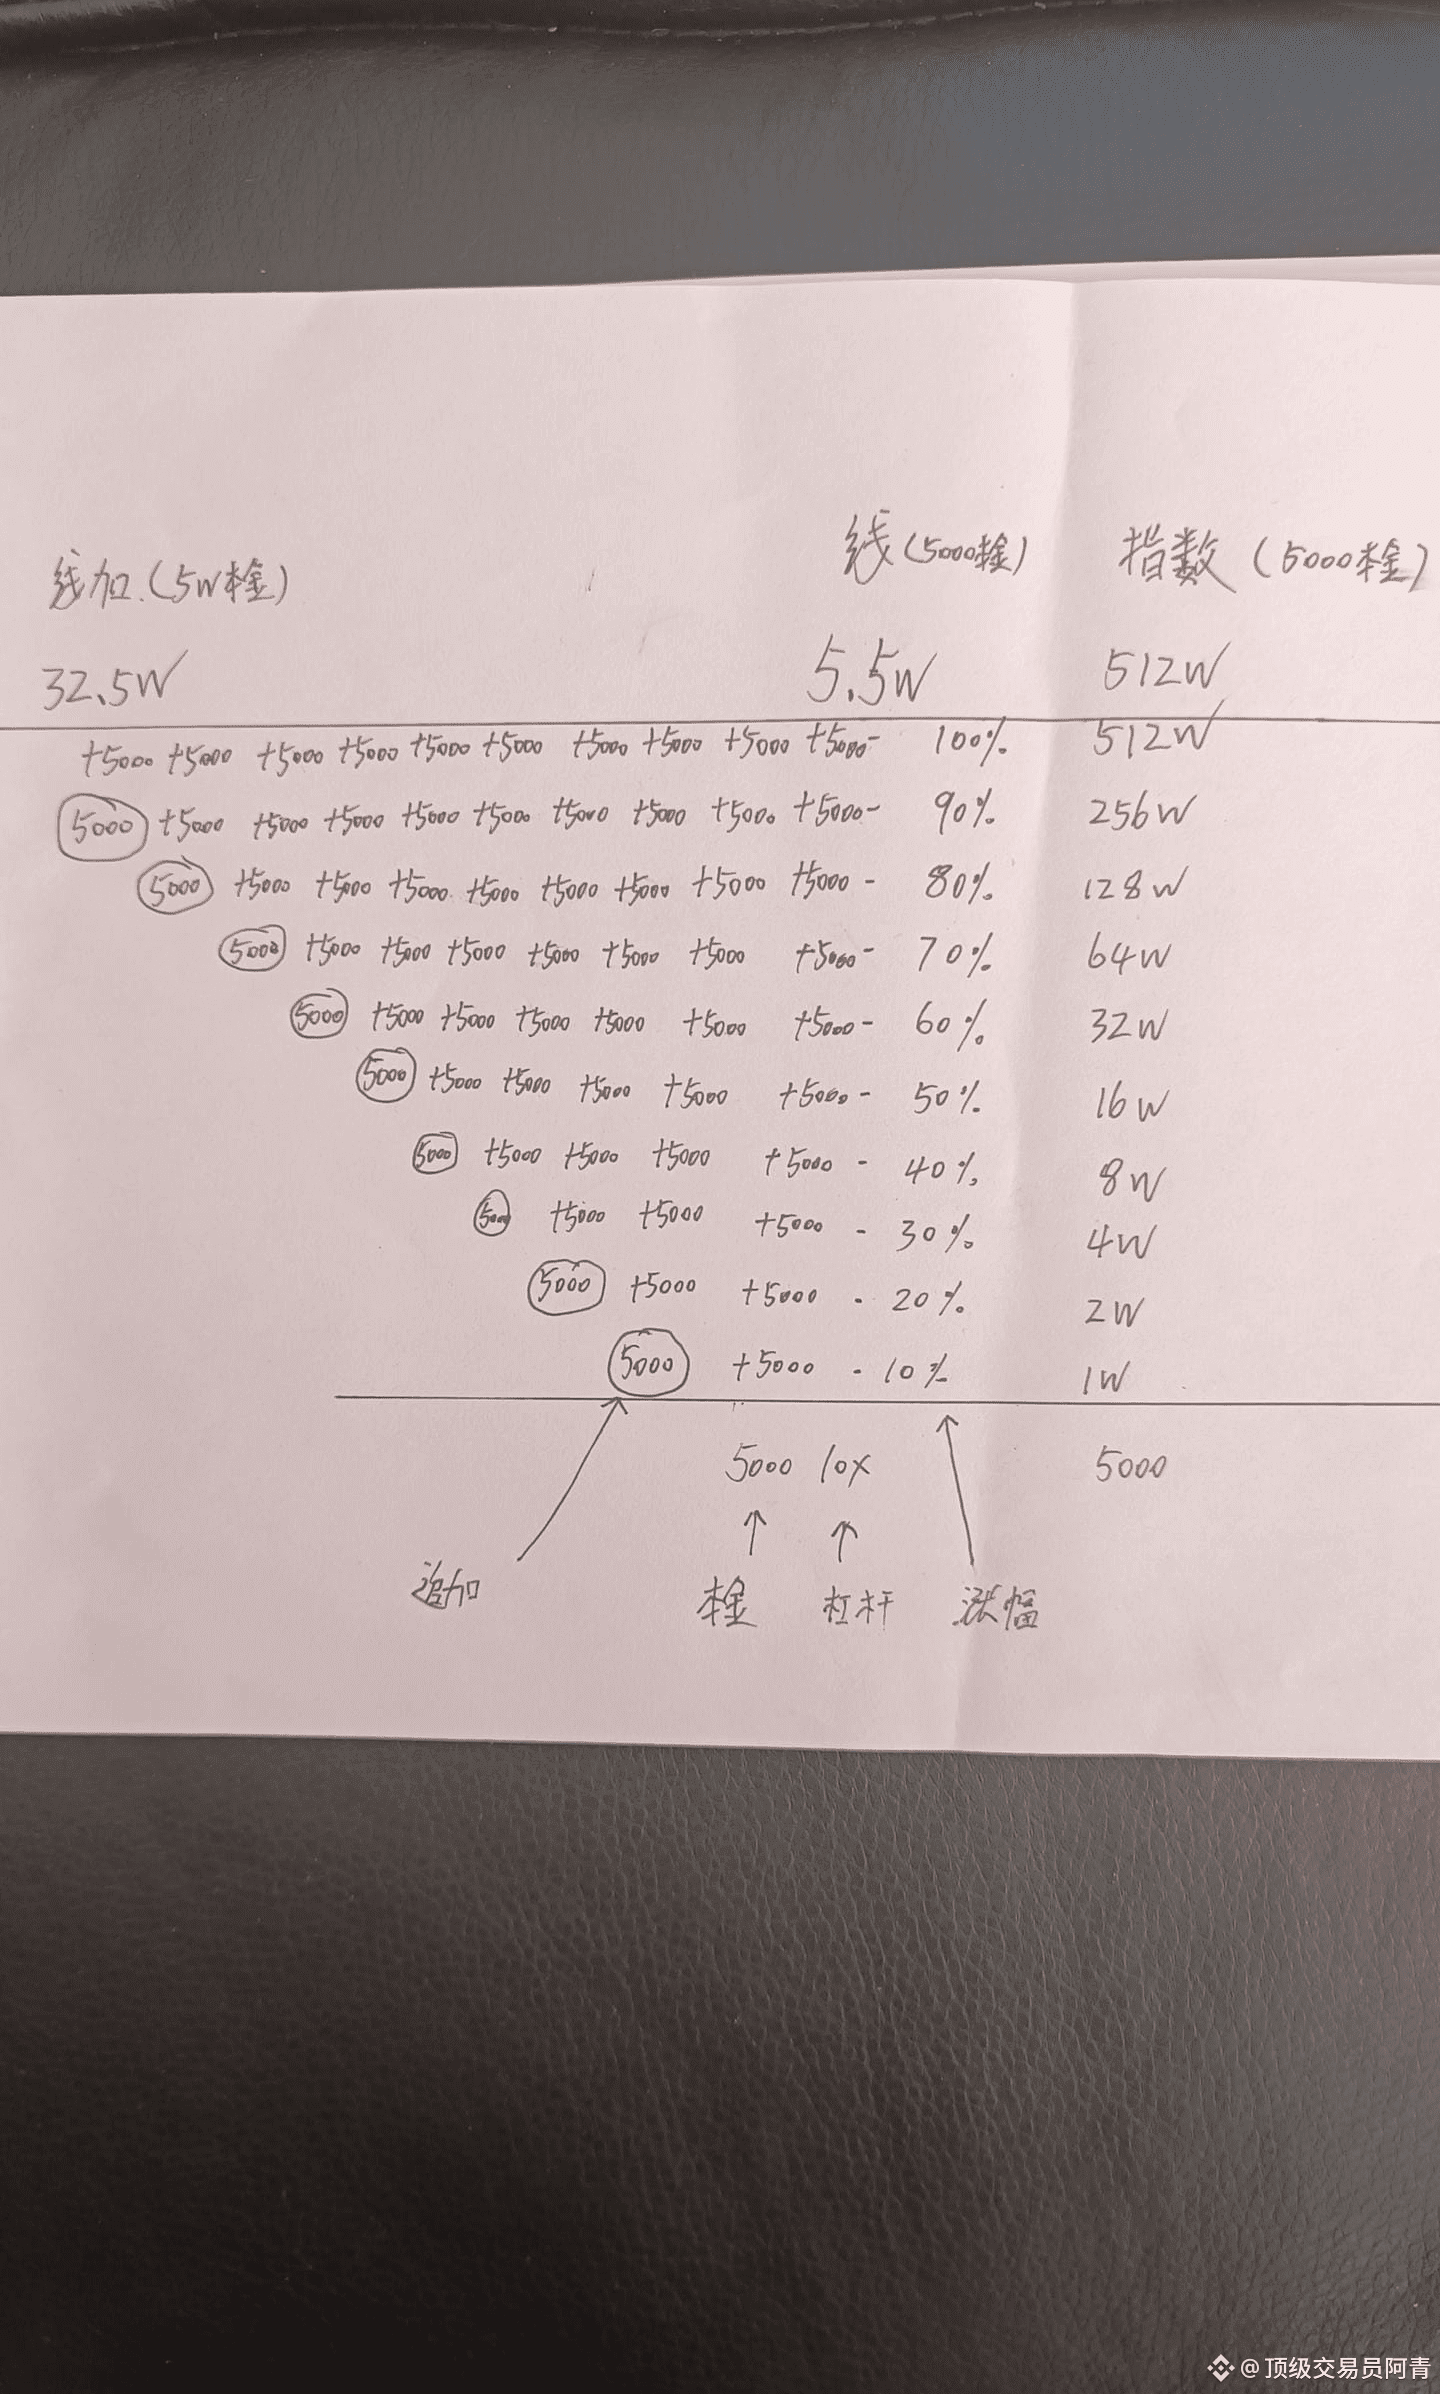 线加.(5W本金) 线(5000本金) 指数(5000本金)
32.5W 5.5W 512W
+5000 +5000 +5000 +5000 +5000 +5000 +5000 +5000 +5000 +5000- 100% 512W
5000 +5000 +5000 +5000 +5000 +5000 +5000 +5000 +5000 +5000- 90% 256W
5000 +5000 +5000 +5000 +5000 +5000 +5000 +5000 +5000 - 80% 128W
5000 +5000 +5000 +5000 +5000 +5000 +5000 +5000- 70% 64W
5000 +5000 +5000 +5000 +5000 +5000 +5000- 60% 32W
5000 +5000 +5000 +5000 +5000 +5000- 50% 16W
5000 +5000 +5000 +5000 +5000 - 40% 8W
5000 +5000 +5000 +5000 - 30% 4W
5000 +5000 +5000 - 20% 2W
5000 +5000 - 10% 1W
5000 10X 5000
追加 本金 杠杆 涨幅
@顶级交易员阿青